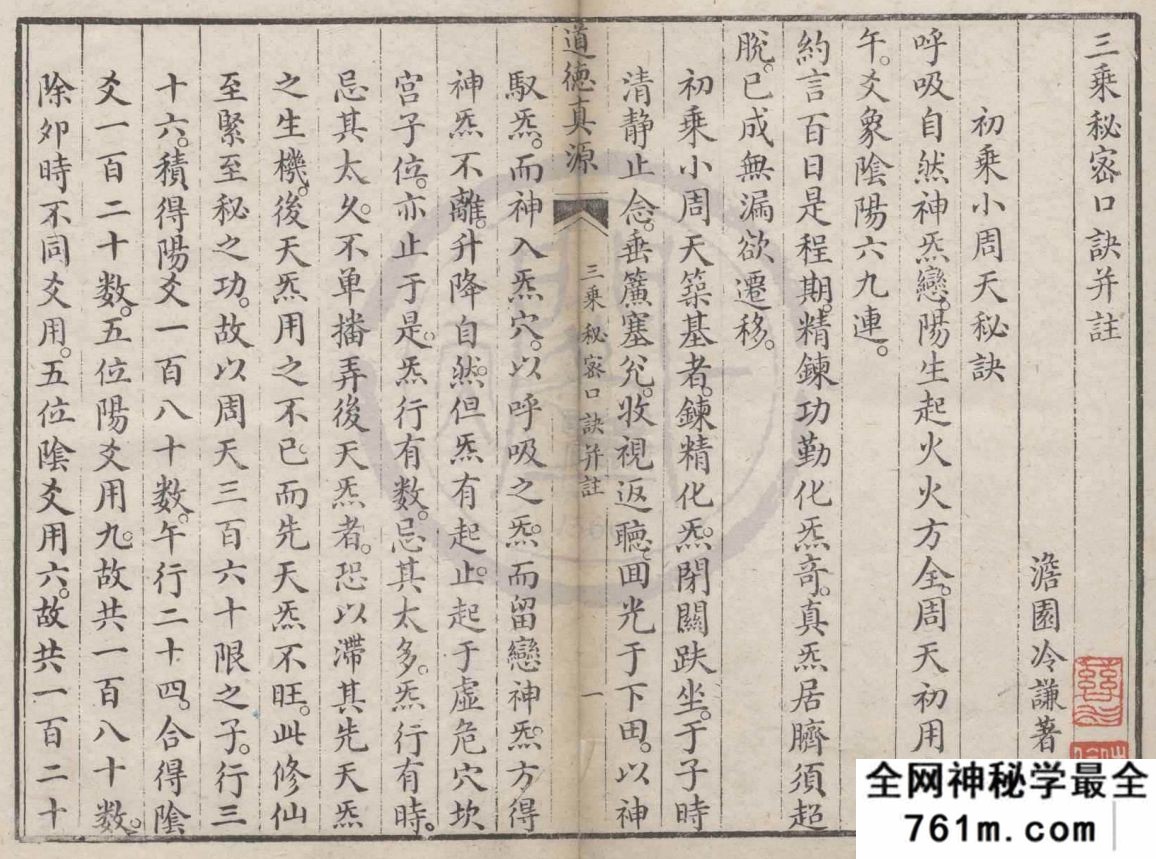 三乘秘密口訣并註
澹園冷謙著
初乘小周天秘訣
呼吸自然神炁戀。陽生起火火方全。周天初用
午。爻象陰陽六九連。
約言百日是程期。精鍊功勤化炁奇。真炁居臍須超
脫。已成無漏欲遷移。
初乘小周天築基者。鍊精化炁。閉關趺坐。于子時
清静止念。垂簾塞兌。收視返聽。囬光于下田。以神
道德真源
三乘秘密口訣并註
一
馭炁。而神入炁穴。以呼吸之炁。而留戀神炁。方得
神炁不離。升降自然。但炁有起止。起于虛危穴坎
宫子位。亦止于是。炁行有数。忌其太多。炁行有時。
忌其太久。不单播弄後天炁者。恐以滯其先天炁
之生機。後天炁用之不已。而先天炁不旺。此修仙
至緊至秘之功。故以周天三百六十限之子。行三
十六。積得陽爻一百八十數。午行二十四。合得陰
爻一百二十數。五位陽爻用九。故共一百八十數。
除夘時不同爻用。五位陰爻用六。故共一百二十
全网神秘学最全
761m.com